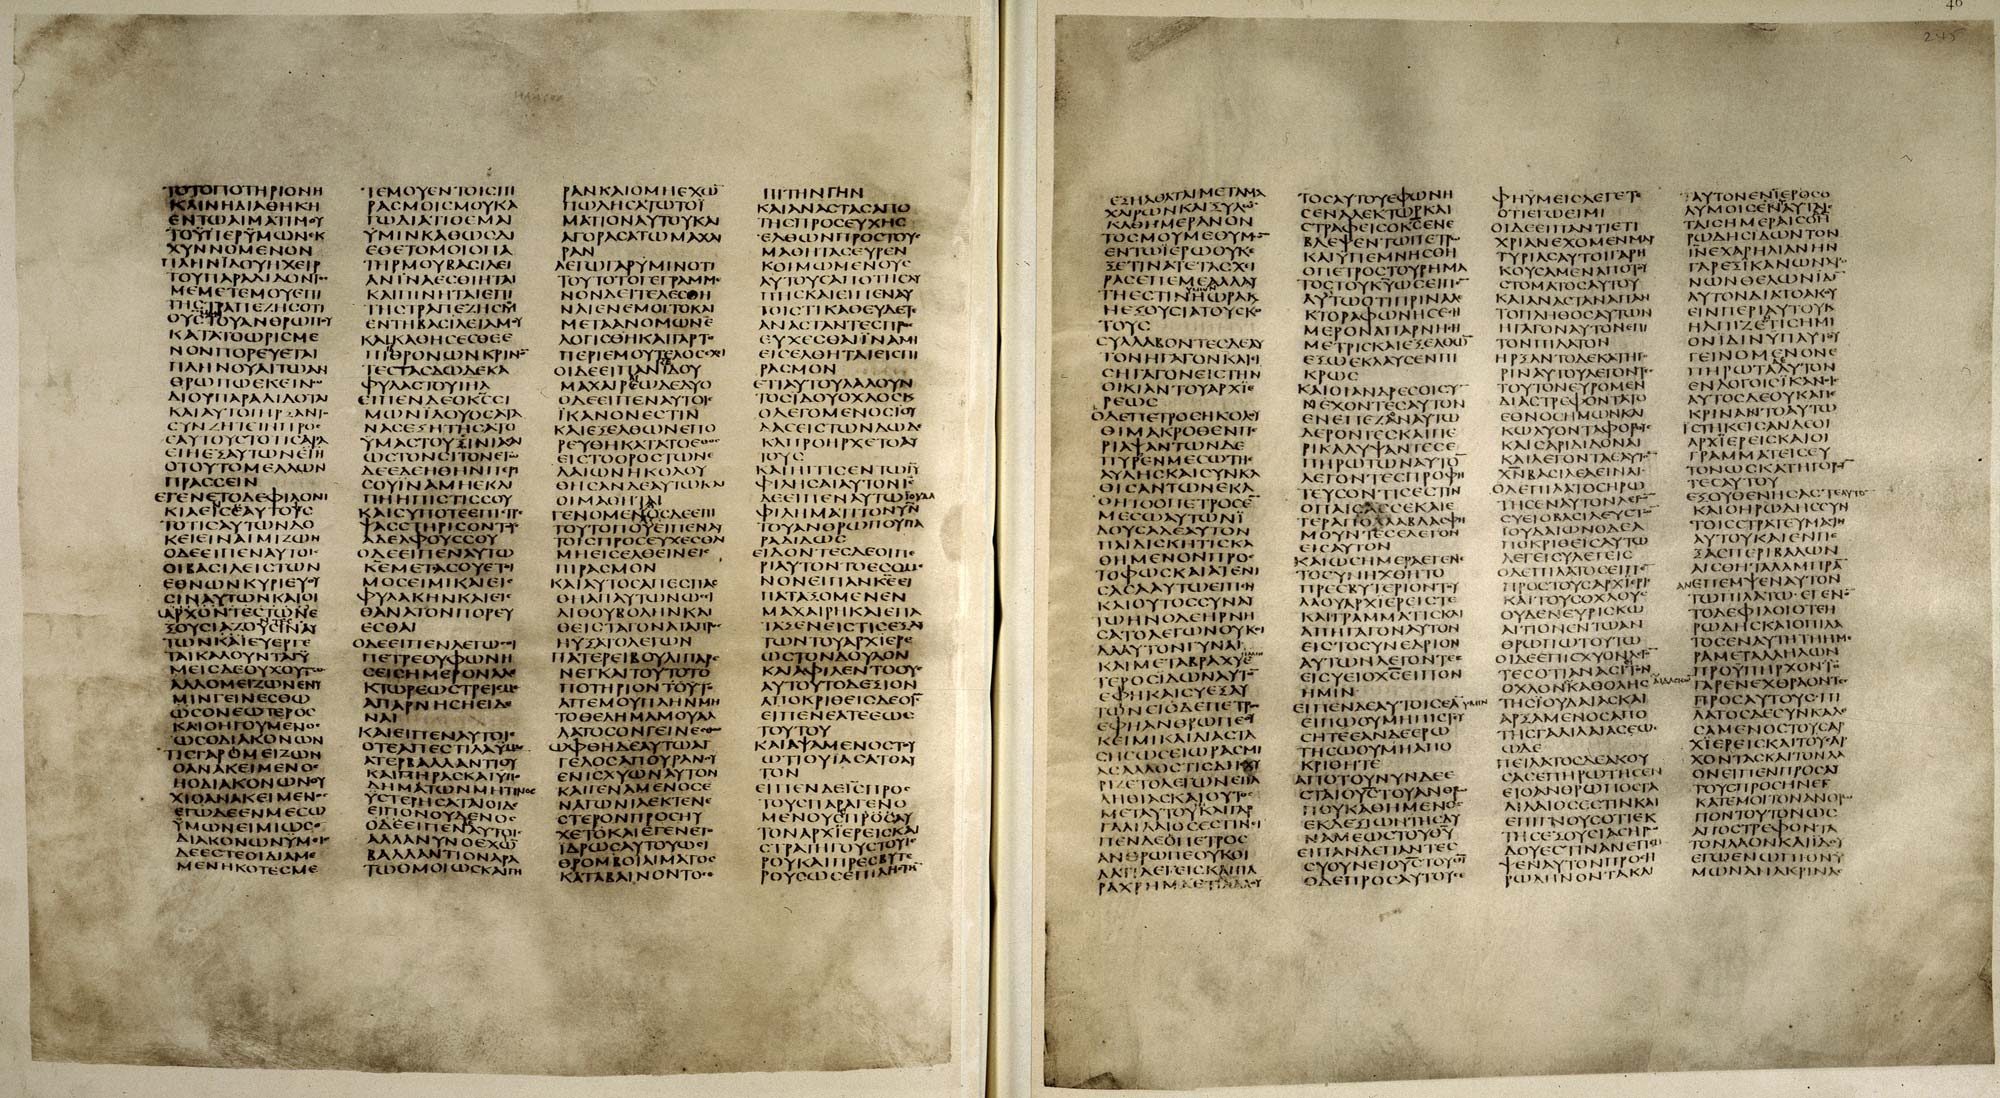 ΤΟΤΟΠΟΤΗΡΙΟΝΗ
ΚΑΙΝΗΔΙΑΘΗΚΗ
ΕΝΤΩΑΙΜΑΤΙΜΟΥ
ΤΟΫΠΕΡΫΜΩΝΕΚ
ΧΥΝΝΟΜΕΝΟΝ
ΠΛΗΝΙΔΟΥΗΧΕΙΡ
ΤΟΥΠΑΡΑΔΙΔΟΝΤΟϹ
ΜΕΜΕΤΕΜΟΥΕΠΙ
ΤΗϹΤΡΑΠΕΖΗϹΟΤΙ
ΚΑΤΑΤΟΩΡΙϹΜΕ
ΝΟΝΠΟΡΕΥΕΤΑΙ
ΠΛΗΝΟΥΑΙΤΩΑΝ
ΘΡΩΠΩΕΚΕΙΝΩ
ΔΙΟΥΠΑΡΑΔΙΔΟΤΑΙ
ΚΑΙΑΥΤΟΙΗΡΞΑΝΤΟ
ϹΥΝΖΗΤΕΙΝΠΡΟϹ
ΕΑΥΤΟΥϹΤΟΤΙϹΑΡΑ
ΕΙΗΕΞΑΥΤΩΝΕΙΗ
ΟΤΟΥΤΟΜΕΛΛΩΝ
ΠΡΑϹϹΕΙΝ
ΕΓΕΝΕΤΟΔΕΦΙΛΟΝΙ
ΚΙΑΕΙϹΕΑΥΤΟΥϹ
ΤΟΤΙϹΑΥΤΩΝΔΟ
ΚΕΙΕΙΝΑΙΜΙΖΩΝ
ΟΔΕΕΙΠΕΝΑΥΤΟΙϹ
ΟΙΒΑϹΙΛΕΙϹΤΩΝ
ΕΘΝΩΝΚΥΡΙΕΥΟΥ
ϹΙΝΑΥΤΩΝΚΑΙΟΙ
ΤΩΝΚΑΙΕΥΕΡΓΕ
ΤΑΙΚΑΛΟΥΝΤΑΙΫ
ΜΕΙϹΔΕΟΥΧΟΥΤΩϹ
ΑΛΛΟΜΕΙΖΩΝΕΝΫ
ΜΙΝΓΕΙΝΕϹΘΩ
ΩϹΟΝΕΩΤΕΡΟϹ
ΚΑΙΟΗΓΟΥΜΕΝΟϹ
ΩϹΟΔΙΑΚΟΝΩΝ
ΤΙϹΓΑΡΟΜΕΙΖΩΝ
ΟΑΝΑΚΕΙΜΕΝΟϹ
ΗΟΔΙΑΚΟΝΩΝΟΥ
ΧΙΟΑΝΑΚΕΙΜΕΝΟϹ
ΕΓΩΔΕΕΝΜΕϹΩ
ΫΜΩΝΕΙΜΙΩϹΟ
ΔΙΑΚΟΝΩΝΫΜΕΙϹ
ΔΕΕϹΤΕΟΙΔΙΑΜΕ
ΜΕΝΗΚΟΤΕϹΜΕ
ΤΕΜΟΥΕΝΤΟΙϹΠΙ
ΡΑϹΜΟΙϹΜΟΥΚΑ
ΓΩΔΙΑΤΙΘΕΜΑΙ
ΫΜΙΝΚΑΘΩϹΔΙ
ΕΘΕΤΟΜΟΙΟΠΑ
ΤΗΡΜΟΥΒΑϹΙΛΕΙ
ΑΝΙΝΑΕϹΘΗΤΑΙ
ΚΑΙΠΙΝΗΤΑΙΕΠΙ
ΤΗϹΤΡΑΠΕΖΗϹΜΟΥ
ΕΝΤΗΒΑϹΙΛΕΙΑΜΟΥ
ΚΑΙΚΑΘΗϹΕϹΘΕΕ
ΠΙΘΡΟΝΩΝΚΡΙΝΟΝ
ΤΕϹΤΑϹΔΩΔΕΚΑ
ΦΥΛΑϹΤΟΥΙΗΛ
ΕΙΠΕΝΔΕΟΚϹϹΙ
ΜΩΝΪΔΟΥΟϹΑΤΑ
ΝΑϹΕΞΗΤΗϹΑΤΟ
ΫΜΑϹΤΟΥϹΙΝΙΑϹΑΙ
ΩϹΤΟΝϹΙΤΟΝΕΓΩ
ΔΕΕΔΕΗΘΗΝΠΕΡΙ
ϹΟΥΙΝΑΜΗΕΚΛΙ
ΠΗΗΠΙϹΤΙϹϹΟΥ
ΚΑΙϹΥΠΟΤΕΕΠΙϹΤΡΕ
ΨΑϹϹΤΗΡΙϹΟΝΤΟΥϹ
ΑΔΕΛΦΟΥϹϹΟΥ
ΟΔΕΕΙΠΕΝΑΥΤΩ
ΚΕΜΕΤΑϹΟΥΕΤΟΙ
ΜΟϹΕΙΜΙΚΑΙΕΙϹ
ΦΥΛΑΚΗΝΚΑΙΕΙϹ
ΘΑΝΑΤΟΝΠΟΡΕΥ
ΕϹΘΑΙ
ΟΔΕΕΙΠΕΝΛΕΓΩϹΟΙ
ΠΕΤΡΕΟΥΦΩΝΗ
ϹΕΙϹΗΜΕΡΟΝΑΛΕ
ΚΤΩΡΕΩϹΤΡΕΙϹΜΕ
ΑΠΑΡΝΗϹΗΕΙΔΕ
ΝΑΙ
ΚΑΙΕΙΠΕΝΑΥΤΟΙϹ
ΟΤΕΑΠΕϹΤΙΛΑΫΜΑϹ
ΑΤΕΡΒΑΛΛΑΝΤΙΟΥ
ΚΑΙΠΗΡΑϹΚΑΙΥΠΟ
ΔΗΜΑΤΩΝΜΗΤΙΝΟϹ
ΫϹΤΕΡΗϹΑΤΑΙΟΙΔΕ
ΕΙΠΟΝΟΥΔΕΝΟϹ
ΟΔΕΕΙΠΕΝΑΥΤΟΙϹ
ΑΛΛΑΝΥΝΟΕΧΩ
ΒΑΛΛΑΝΤΙΟΝΑΡΑ
ΤΩΟΜΟΙΩϹΚΑΙΠΗ
ΡΑΝΚΑΙΟΜΗΕΧΩ
ΠΩΛΗϹΑΤΩΤΟΙ
ΜΑΤΙΟΝΑΥΤΟΥΚΑΙ
ΑΓΟΡΑϹΑΤΩΜΑΧΑΙ
ΡΑΝ
ΛΕΓΩΓΑΡΫΜΙΝΟΤΙ
ΤΟΥΤΟΤΟΓΕΓΡΑΜΜΕ
ΝΟΝΔΕΙΤΕΛΕϹΘΗ
ΝΑΙΕΝΕΜΟΙΤΟΚΑΙ
ΜΕΤΑΑΝΟΜΩΝΕ
ΛΟΓΙϹΘΗΚΑΙΓΑΡΤΟ
ΠΕΡΙΕΜΟΥΤΕΛΟϹΕΧΙ
ΟΙΔΕΕΙΠΑΝΙΔΟΥ
ΜΑΧΑΙΡΕΩΔΕΔΥΟ
ΟΔΕΕΙΠΕΝΑΥΤΟΙϹ
ΪΚΑΝΟΝΕϹΤΙΝ
ΚΑΙΕΞΕΛΘΩΝΕΠΟ
ΡΕΥΘΗΚΑΤΑΤΟΕΘΟϹ
ΕΙϹΤΟΟΡΟϹΤΩΝΕ
ΛΑΙΩΝΗΚΟΛΟΥ
ΘΗϹΑΝΔΕΑΥΤΩΚΑΙ
ΟΙΜΑΘΗΤΑΙ
ΓΕΝΟΜΕΝΟϹΔΕΕΠΙ
ΤΟΥΤΟΠΟΥΕΙΠΕΝΑΥ
ΤΟΙϹΠΡΟϹΕΥΧΕϹΘΟΝ
ΜΗΕΙϹΕΛΘΕΙΝΕΙϹ
ΠΙΡΑϹΜΟΝ
ΚΑΙΑΥΤΟϹΑΠΕϹΠΑϹ
ΘΗΑΠΑΥΤΩΝΩϹΙ
ΛΙΘΟΥΒΟΛΗΝΚΑΙ
ΘΕΙϹΤΑΓΟΝΑΤΑΠΡΟϹ
ΗΥΞΑΤΟΛΕΓΩΝ
ΠΑΤΕΡΕΙΒΟΥΛΙΠΑΡΕ
ΝΕΓΚΑΙΤΟΥΤΟΤΟ
ΠΟΤΗΡΙΟΝΤΟΥΤ
ΑΠΕΜΟΥΠΛΗΝΜΗ
ΤΟΘΕΛΗΜΑΜΟΥΑΛ
ΛΑΤΟϹΟΝΓΕΙΝΕϹΘΩ
ΩΦΘΗΔΕΑΥΤΩΑΓ
ΓΕΛΟϹΑΠΟΥΡΑΝΟΥ
ΕΝΙϹΧΥΩΝΑΥΤΟΝ
ΚΑΙΓΕΝΑΜΕΝΟϹΕ
ΝΑΓΩΝΙΑΕΚΤΕΝΕ
ϹΤΕΡΟΝΠΡΟϹΗΥ
ΧΕΤΟΚΑΙΕΓΕΝΕΤΟ
ΪΔΡΩϹΑΥΤΟΥΩϹΕΙ
ΘΡΟΜΒΟΙΑΙΜΑΤΟϹ
ΚΑΤΑΒΑΙΝΟΝΤΟϹ
ΠΙΤΗΝΓΗΝ
ΚΑΙΑΝΑϹΤΑϹΑΠΟ
ΤΗϹΠΡΟϹΕΥΧΗϹ
ΕΛΘΩΝΠΡΟϹΤΟΥϹ
ΜΑΘΗΤΑϹΕΥΡΕΝ
ΚΟΙΜΩΜΕΝΟΥϹ
ΑΥΤΟΥϹΑΠΟΤΗϹΛΥ
ΠΗϹΚΑΙΕΙΠΕΝΑΥ
ΤΟΙϹΤΙΚΑΘΕΥΔΕΤΕ
ΑΝΑϹΤΑΝΤΕϹΠΡΟϹ
ΕΥΧΕϹΘΑΙΪΝΑΜΙ
ΕΙϹΕΛΘΗΤΑΙΕΙϹΠΙ
ΡΑϹΜΟΝ
ΕΤΙΑΥΤΟΥΛΑΛΟΥΝ
ΤΟϹΙΔΟΥΟΧΛΟϹΚ
ΟΛΕΓΟΜΕΝΟϹΙΟΥ
ΔΑϹΕΙϹΤΩΝΔΩΔΕ
ΚΑΠΡΟΗΡΧΕΤΟΑΥ
ΤΟΥϹ
ΚΑΙΗΓΓΙϹΕΝΤΩΙΥ
ΦΙΛΗϹΑΙΑΥΤΟΝΙϹ
ΔΕΕΙΠΕΝΑΥΤΩΙΟΥΔΑ
ΦΙΛΗΜΑΤΙΤΟΝΥΝ
ΤΟΥΑΝΘΡΩΠΟΥΠΑ
ΡΑΔΙΔΩϹ
ΕΙΔΟΝΤΕϹΔΕΟΙΠΕ
ΡΙΑΥΤΟΝΤΟΕϹΟΜΕ
ΝΟΝΕΙΠΑΝΚΕΕΙ
ΠΑΤΑΞΟΜΕΝΕΝ
ΜΑΧΑΙΡΗΚΑΙΕΠΑ
ΤΑΞΕΝΕΙϹΤΙϹΕΞΑΥ
ΤΩΝΤΟΥΑΡΧΙΕΡΕ
ΩϹΤΟΝΔΟΥΛΟΝ
ΚΑΙΑΦΙΛΕΝΤΟΟΥϹ
ΑΥΤΟΥΤΟΔΕΞΙΟΝ
ΑΠΟΚΡΙΘΕΙϹΔΕΟΙϹ
ΕΙΠΕΝΕΑΤΕΕΩϹ
ΤΟΥΤΟΥ
ΚΑΙΑΨΑΜΕΝΟϹΤΟΥ
ΩΤΙΟΥΙΑϹΑΤΟΑΥ
ΤΟΝ
ΕΙΠΕΝΔΕΙϹΠΡΟϹ
ΤΟΥϹΠΑΡΑΓΕΝΟ
ΜΕΝΟΥϹΠΡΟϹΑΥ
ΤΟΝΑΡΧΙΕΡΕΙϹΚΑΙ
ϹΤΡΑΤΗΓΟΥϹΤΟΥΙΕ
ΡΟΥΚΑΙΠΡΕϹΒΥΤΕ
ΡΟΥϹΩϹΕΠΙΛΗϹΤΗ
245
46
ΕΞΗΛΘΑΤΑΙΜΕΤΑΜΑ
ΧΑΙΡΩΝΚΑΙΞΥΛΩΝ
ΚΑΘΗΜΕΡΑΝΟΝ
ΤΟϹΜΟΥΜΕΘΥΜΩ
ΕΝΤΩΪΕΡΩΟΥΚΕ
ΞΕΤΙΝΑΤΕΤΑϹΧΙ
ΡΑϹΕΠΕΜΕΑΛΛΑΥ
ΤΗΕϹΤΙΝΗΩΡΑΚ
ΗΕΞΟΥϹΙΑΤΟΥϹΚ
ΤΟΥϹ
ϹΥΛΛΑΒΟΝΤΕϹΔΕΑΥ
ΤΟΝΗΓΑΓΟΝΚΑΙΕΙ
ϹΗΓΑΓΟΝΕΙϹΤΗΝ
ΟΙΚΙΑΝΤΟΥΑΡΧΙΕ
ΡΕΩϹ
ΟΔΕΠΕΤΡΟϹΗΚΟΛΟΥ
ΘΙΜΑΚΡΟΘΕΝΠΕ
ΡΙΑΨΑΝΤΩΝΔΕ
ΠΥΡΕΝΜΕϹΩΤΗϹ
ΑΥΛΗϹΚΑΙϹΥΝΚΑ
ΘΙϹΑΝΤΩΝΕΚΑ
ΘΗΤΟΟΠΕΤΡΟϹΕ
ΜΕϹΩΑΥΤΩΝΪ
ΔΟΥϹΑΔΕΑΥΤΟΝ
ΠΑΙΔΙϹΚΗΤΙϹΚΑ
ΘΗΜΕΝΟΝΠΡΟϹ
ΤΟΦΩϹΚΑΙΑΤΕΝΙ
ϹΑϹΑΑΥΤΩΕΙΠΕΝ
ΚΑΙΟΥΤΟϹϹΥΝΑΥ
ΤΩΗΝΟΔΕΗΡΝΗ
ϹΑΤΟΛΕΓΩΝΟΥΚΟΙ
ΔΑΑΥΤΟΝΓΥΝΑΙ
ΚΑΙΜΕΤΑΒΡΑΧΥΕ
ΤΕΡΟϹΙΔΩΝΑΥΤΟ
ΕΦΗΚΑΙϹΥΕΞΑΥ
ΤΩΝΕΙΟΔΕΠΕΤΡΟϹ
ΕΦΗΑΝΘΡΩΠΕΟΥ
ΚΕΙΜΙΚΑΙΔΙΑϹΤΑ
ϹΗϹΩϹΕΙΩΡΑϹΜΙ
ΑϹΑΛΛΟϹΤΙϹΔΙΙϹΧΥ
ΡΙΖΕΤΟΛΕΓΩΝΕΠΑ
ΛΗΘΙΑϹΚΑΙΟΥΤΟϹ
ΜΕΤΑΥΤΟΥΚΑΙΓΑΡ
ΓΑΛΙΛΑΙΟϹΕϹΤΙΝΕΙ
ΠΕΝΔΕΟΠΕΤΡΟϹ
ΑΝΘΡΩΠΕΟΥΚΟΙ
ΔΑΤΙΛΕΓΕΙϹΚΑΙΠΑ
ΡΑΧΡΗΜΑΕΤΙΛΑΛΟΥ
ΤΟϹΑΥΤΟΥΕΦΩΝΗ
ϹΕΝΑΛΕΚΤΩΡΚΑΙ
ϹΤΡΑΦΕΙϹΟΚϹΕΝΕ
ΒΛΕΨΕΝΤΩΠΕΤΡΩ
ΚΑΙΥΠΕΜΝΗϹΘΗ
ΟΠΕΤΡΟϹΤΟΥΡΗΜΑ
ΤΟϹΤΟΥΚΥΩϹΕΙΠΕ
ΑΥΤΩΟΤΙΠΡΙΝΑΛΕ
ΚΤΟΡΑΦΩΝΗϹΕϹΗ
ΜΕΡΟΝΑΠΑΡΝΗϹΗ
ΜΕΤΡΙϹΚΑΙΕΞΕΛΘΩ
ΕΞΩΕΚΛΑΥϹΕΝΠΙ
ΚΡΩϹ
ΚΑΙΟΙΑΝΔΡΕϹΟΙϹΥ
ΝΕΧΟΝΤΕϹΑΥΤΟΝ
ΕΝΕΠΕΖΑΝΑΥΤΩ
ΔΕΡΟΝΤΕϹΚΑΙΠΕ
ΡΙΚΑΛΥΨΑΝΤΕϹΕ
ΠΗΡΩΤΩΝΑΥΤΟ
ΛΕΓΟΝΤΕϹΠΡΟΦΗ
ΤΕΥϹΟΝΤΙϹΕϹΤΙΝ
ΟΠΑΙϹΑϹϹΕΚΑΙΕ
ΤΕΡΑΠΟΛΛΑΒΛΑϹΦΗ
ΜΟΥΝΤΕϹΕΛΕΓΟΝ
ΕΙϹΑΥΤΟΝ
ΚΑΙΩϹΗΜΕΡΑΕΓΕΝΕ
ΤΟϹΥΝΗΧΘΗΤΟ
ΠΡΕϹΒΥΤΕΡΙΟΝΤΟΥ
ΛΑΟΥΑΡΧΙΕΡΕΙϹΤΕ
ΚΑΙΓΡΑΜΜΑΤΙϹΚΑΙ
ΑΠΗΓΑΓΟΝΑΥΤΟΝ
ΕΙϹΤΟϹΥΝΕΔΡΙΟΝ
ΑΥΤΩΝΛΕΓΟΝΤΕϹ
ΕΙϹΥΕΙΟΧϹΕΙΠΟΝ
ΗΜΙΝ
ΕΙΠΕΝΔΕΑΥΤΟΙϹΕΑΥΜΙΝ
ΕΙΠΩΟΥΜΗΠΙϹΤΕΥ
ϹΗΤΕΕΑΝΔΕΕΡΩ
ΤΗϹΩΟΥΜΗΑΠΟ
ΚΡΙΘΗΤΕ
ΑΠΟΤΟΥΝΥΝΔΕΕ
ϹΤΑΙΟΥϹΤΟΥΑΝΘΡΩ
ΠΟΥΚΑΘΗΜΕΝΟϹ
ΕΚΔΕΞΙΩΝΤΗϹΔΥ
ΝΑΜΕΩϹΤΟΥΘΥ
ΕΙΠΑΝΔΕΠΑΝΤΕϹ
ϹΥΟΥΝΕΙΟΥϹΤΟΥΘΥ
ΟΔΕΠΡΟϹΑΥΤΟΥϹΕ
ΦΗΫΜΕΙϹΛΕΓΕΤΕ
ΟΤΙΕΓΩΕΙΜΙ
ΟΙΔΕΕΙΠΑΝΤΙΕΤΙ
ΧΡΙΑΝΕΧΟΜΕΝΜΑΡ
ΤΥΡΙΑϹΑΥΤΟΙΓΑΡΗ
ΚΟΥϹΑΜΕΝΑΠΟΤΟΥ
ϹΤΟΜΑΤΟϹΑΥΤΟΥ
ΚΑΙΑΝΑϹΤΑΝΑΠΑΝ
ΤΟΠΛΗΘΟϹΑΥΤΩΝ
ΗΓΑΓΟΝΑΥΤΟΝΕΠΙ
ΤΟΝΠΙΛΑΤΟΝ
ΗΡΞΑΝΤΟΔΕΚΑΤΗΓΟ
ΡΙΝΑΥΤΟΥΛΕΓΟΝΤΕϹ
ΤΟΥΤΟΝΕΥΡΟΜΕΝ
ΔΙΑϹΤΡΕΦΟΝΤΑΤΟ
ΕΘΝΟϹΗΜΩΝΚΑΙ
ΚΩΛΥΟΝΤΑΦΟΡΟΥϹ
ΚΑΙϹΑΡΙΔΙΔΟΝΑΙ
ΚΑΙΛΕΓΟΝΤΑΕΑΥΤΟ
ΧΝΒΑϹΙΛΕΑΕΙΝΑΙ
ΟΔΕΠΙΛΑΤΟϹΗΡΩ
ΤΗϹΕΝΑΥΤΟΝΛΕΓΩ
ϹΥΕΙΟΒΑϹΙΛΕΥϹΤΩ
ΙΟΥΔΑΙΩΝΟΔΕΑ
ΠΟΚΡΙΘΕΙϹΑΥΤΩ
ΛΕΓΕΙϹΥΛΕΓΕΙϹ
ΟΔΕΠΙΛΑΤΟϹΕΙΠΕ
ΠΡΟϹΤΟΥϹΑΡΧΙΕΡΙϹ
ΚΑΙΤΟΥϹΟΧΛΟΥϹ
ΟΥΔΕΝΕΥΡΙϹΚΩ
ΑΙΤΙΟΝΕΝΤΩΑΝ
ΘΡΩΠΩΤΟΥΤΩ
ΟΙΔΕΕΠΙϹΧΥΟΝΛΕΓΟ
ΤΕϹΟΤΙΑΝΑϹΙΕΙΤΟΝ
ΟΧΛΟΝΚΑΘΟΛΗϹ
ΤΗϹΪΟΥΔΑΙΑϹΚΑΙ
ΑΡΞΑΜΕΝΟϹΑΠΟ
ΤΗϹΓΑΛΙΛΑΙΑϹΕΩϹ
ΩΔΕ
ΠΕΙΛΑΤΟϹΔΕΑΚΟΥ
ϹΑϹΕΠΗΡΩΤΗϹΕΝ
ΕΙΟΑΝΘΡΩΠΟϹΓΑ
ΛΙΛΑΙΟϹΕϹΤΙΝΚΑΙ
ΕΠΙΓΝΟΥϹΟΤΙΕΚ
ΤΗϹΕΞΟΥϹΙΑϹΗΡΩ
ΔΟΥΕϹΤΙΝΑΝΕΠΕ
ΨΕΝΑΥΤΟΝΠΡΟϹΗ
ΡΩΔΗΝΟΝΤΑΚΑΙ
ΑΥΤΟΝΕΝΪΕΡΟϹΟ
ΛΥΜΟΙϹΕΝΑΥΤΑΙϹ
ΤΑΙϹΗΜΕΡΑΙϹΟΔΗ
ΡΩΔΗϹΙΔΩΝΤΟΝ
ΙΝΕΧΑΡΗΛΙΑΝΗΝ
ΓΑΡΕΞΙΚΑΝΩΝΧΡΟ
ΝΩΝΘΕΛΩΝΙΔΙΝ
ΑΥΤΟΝΔΙΑΤΟΑΚΟΥ
ΕΙΝΠΕΡΙΑΥΤΟΥΚ
ΗΛΠΙΖΕΤΙϹΗΜΙ
ΟΝΙΔΙΝΥΠΑΥΤΟΥ
ΓΕΙΝΟΜΕΝΟΝΕ
ΠΗΡΩΤΑΑΥΤΟΝ
ΕΝΛΟΓΟΙϹΙΚΑΝΟΙϹ
ΑΥΤΟϹΔΕΟΥΚΑΠΕ
ΚΡΙΝΑΝΤΟΑΥΤΩ
ΙϹΤΗΚΕΙϹΑΝΔΕΟΙ
ΑΡΧΙΕΡΕΙϹΚΑΙΟΙ
ΓΡΑΜΜΑΤΕΙϹΕΥ
ΤΟΝΩϹΚΑΤΗΓΟΡΟΥ
ΤΕϹΑΥΤΟΥ
ΕΞΟΥΘΕΝΗϹΑϹΔΕΑΥΤΟ
ΚΑΙΟΗΡΩΔΗϹϹΥΝ
ΤΟΙϹϹΤΡΑΤΕΥΜΑϹΙ
ΑΥΤΟΥΚΑΙΕΝΠΕ
ΞΑϹΠΕΡΙΒΑΛΩΝ
ΑΙϹΘΗΤΑΛΑΜΠΡΑ
ΑΝΕΠΕΜΨΕΝΑΥΤΟΝ
ΤΩΠΙΛΑΤΩΕΓΕΝΟΝ
ΤΟΔΕΦΙΛΟΙΟΤΕΗ
ΡΩΔΗϹΚΑΙΟΠΙΛΑ
ΤΟϹΕΝΑΥΤΗΤΗΗΜΕ
ΡΑΜΕΤΑΛΛΗΛΩΝ
ΠΡΟΫΠΗΡΧΟΝ
ΓΑΡΕΝΕΧΘΡΑΟΝΤΕϹ
ΠΡΟϹΑΥΤΟΥϹΠΙ
ΛΑΤΟϹΔΕϹΥΝΚΑΛΕ
ϹΑΜΕΝΟϹΤΟΥϹΑΡ
ΧΙΕΡΕΙϹΚΑΙΤΟΥϹΑΡ
ΧΟΝΤΑϹΚΑΙΤΟΝΛΑ
ΟΝΕΙΠΕΝΠΡΟϹΑΥ
ΤΟΥϹΠΡΟϹΗΝΕΓ
ΚΑΤΕΜΟΙΤΟΝΑΝΟΝ
ΤΟΥΤΟΝΩϹ
ΑΠΟϹΤΡΕΦΟΝΤΑ
ΤΟΝΛΑΟΝΚΑΙΙΔΟΥ
ΕΓΩΕΝΩΠΙΟΝΥ
ΜΩΝΑΝΑΚΡΙΝΑϹ